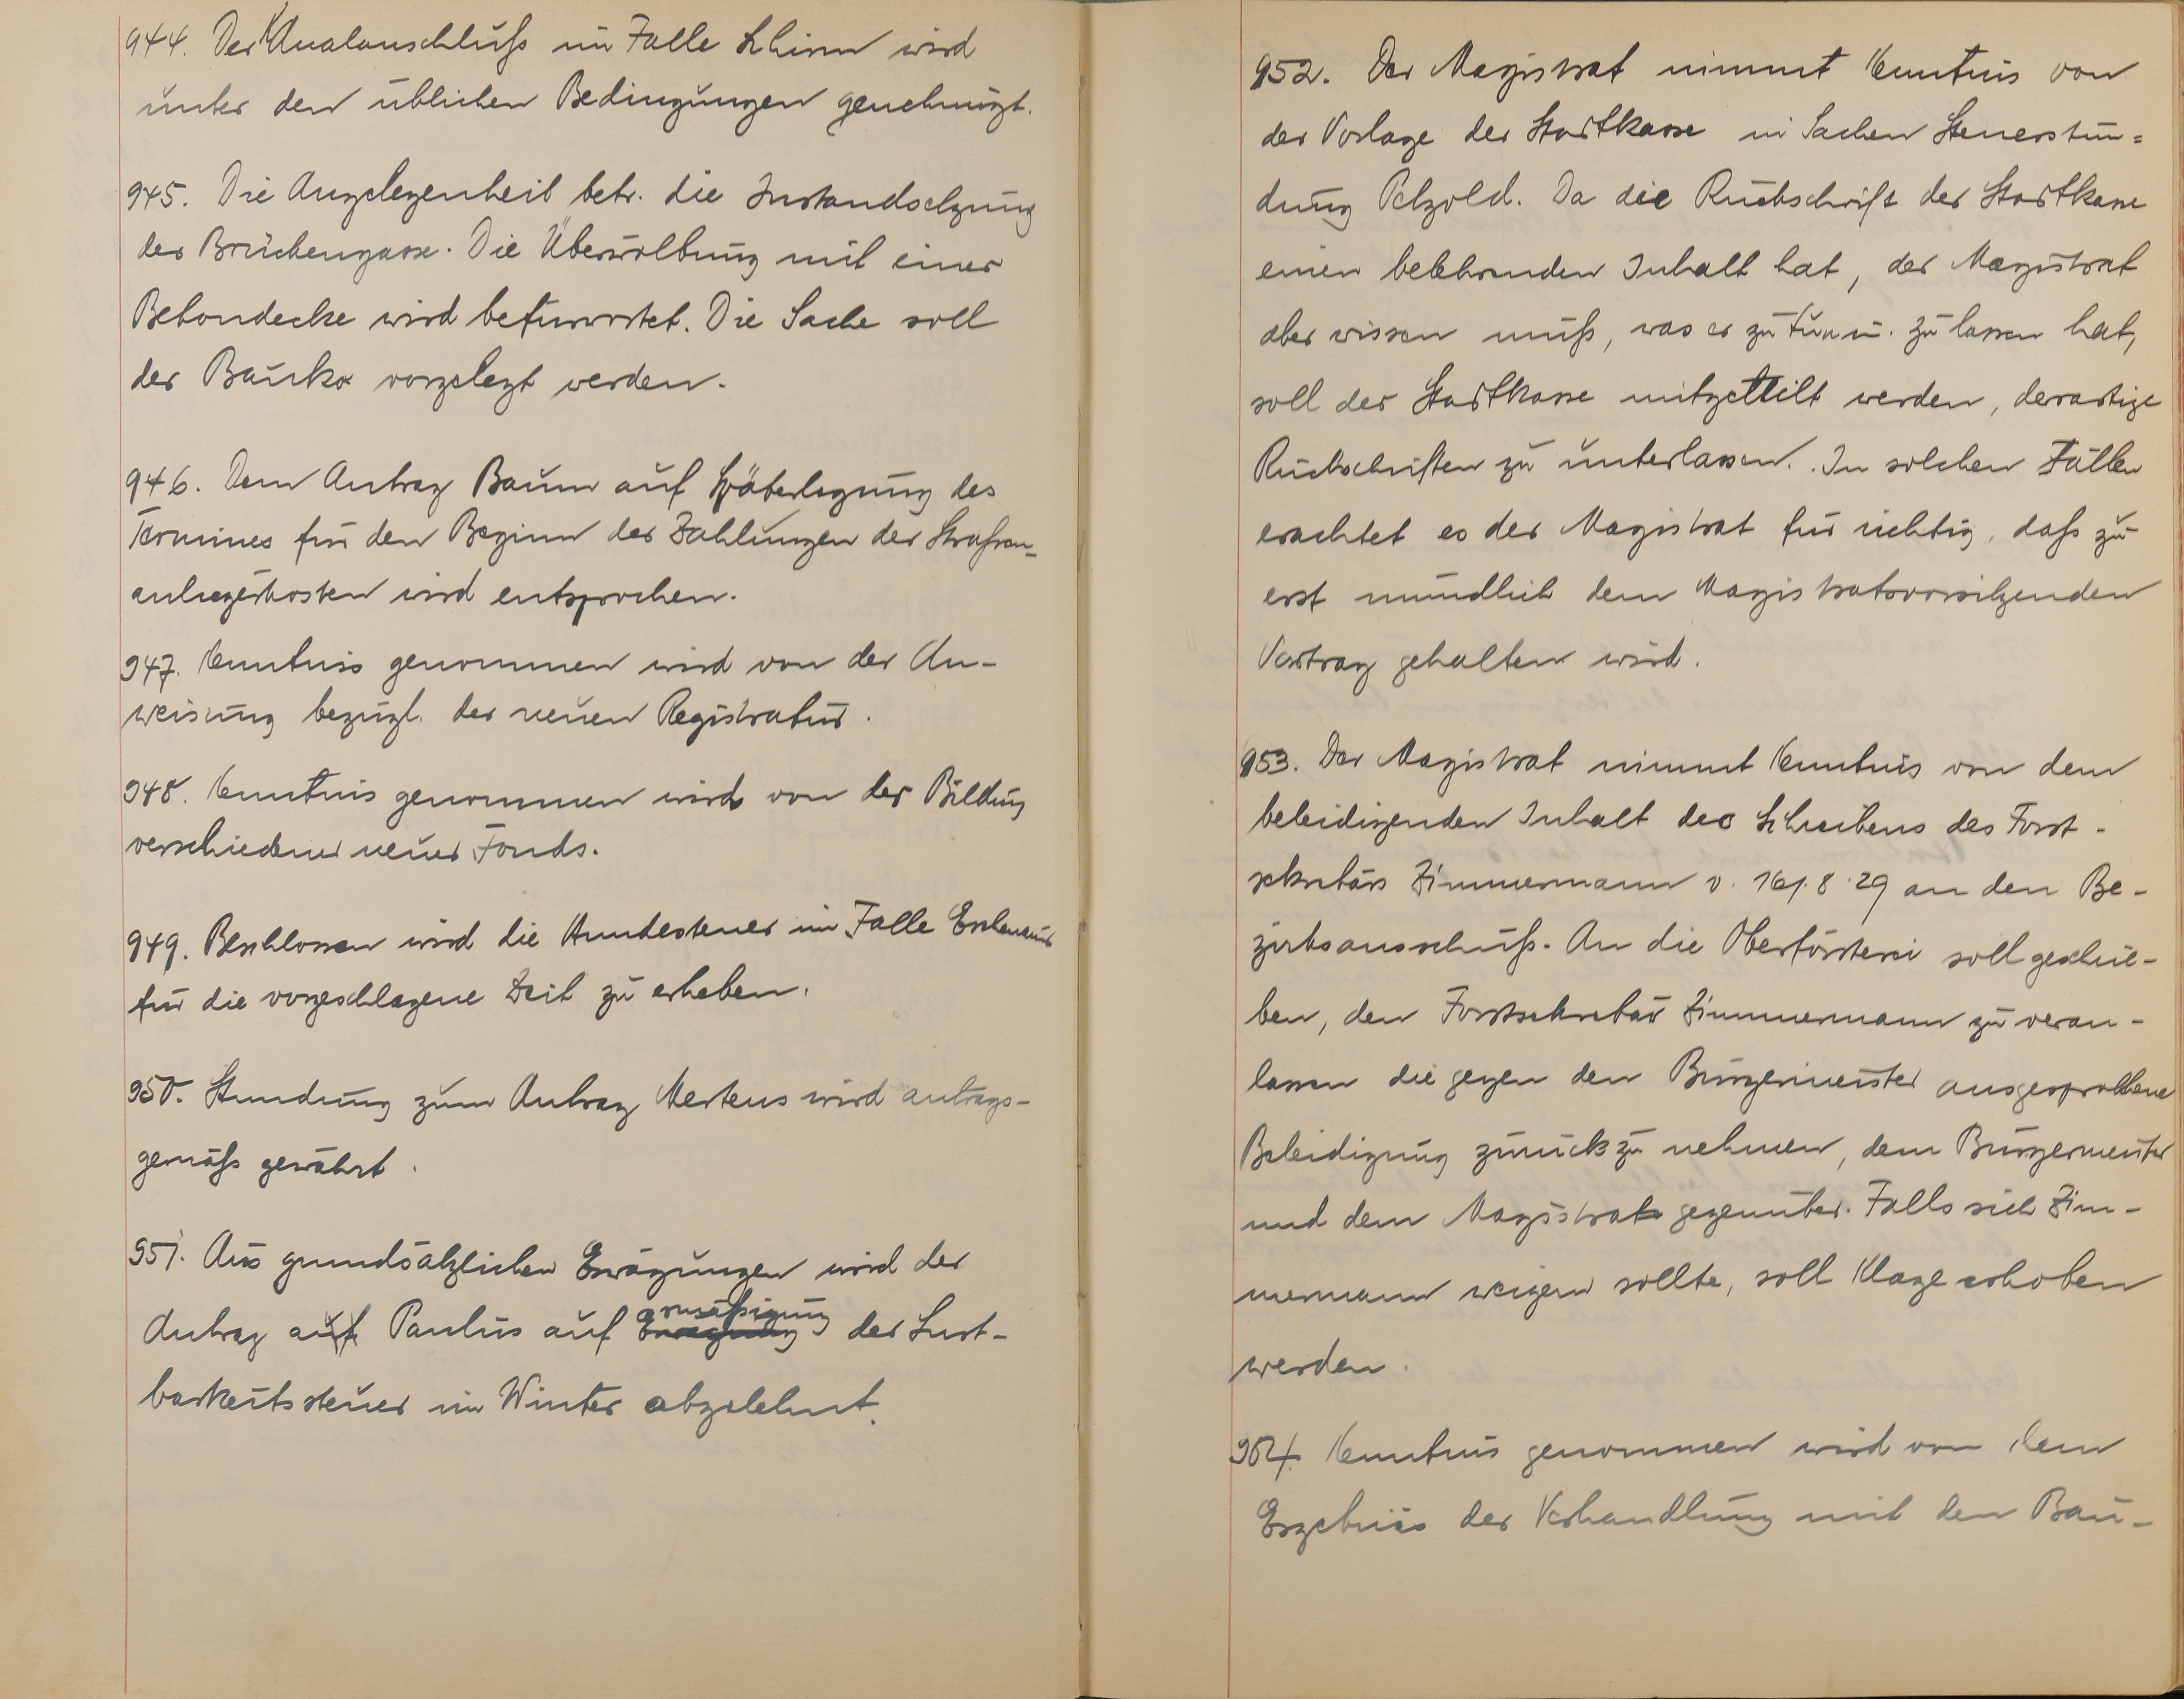 944. Der Kanalanschluß im Falle Schirm wird
unter den üblichen Bedingungen genehmigt.
945. Die Angelegenheit betr. die Instandsetzung
der Brückengasse. Die Überwölbung mit einer
Betondecke wird befürwortet. Die Sache soll
der Bauko vorgelegt werden.
946. Dem Antrag Baum auf Späterlegung des
Termines für den Beginn der Zahlungen der Straßen-
anliegerkosten wird entsprochen.
947. Kenntnis genommen wird von der An-
weisung bezügl. der neuen Registratur.
948. Kenntnis genommen wird von der Bildung
verschiedener neuer Fonds.
949. Beschlossen wird die Hundesteuer im Falle
für die vorgeschlagene Zeit zu erheben.
950. Stundung zum Antrag Mertens wird antrags-
gemäß gewährt.
951. Aus grundsätzlichen Erwägungen wird der
Antrag auf Paulus auf Ermäßigung der Lust-
barkeitssteuer im Winter abgelehnt.
952. Der Magistrat nimmt Kenntnis von
der Vorlage der Stadtkasse in Sachen Steuerstun=
dung Petzold. Da die Rückschrift der Stadtkasse
einen belehrenden Inhalt hat, der Magistrat
aber wissen muß, was er zu tun u. zu lassen hat,
soll der Stadtkasse mitgeteilt werden, derartige
Rückschriften zu unterlassen. In solchen Fällen
erachtet es der Magistrat für richtig, daß zu
erst mündlich dem Magistratsvorsitzenden
Vortrag gehalten wird.
953. Der Magistrat nimmt Kenntnis von dem
beleidigenden Inhalt des Schreibens des Forst-
sekretärs Zimmermann v. 16/.8.29 an den Be-
zirksausschuß. An die Oberförsterei soll geschrie-
ben, den Forstsekretär Zimmermann zu veran-
lassen die gegen den Bürgermeister ausgesprochene
Beleidigung zurück zu nehmen, dem Bürgermeister
und dem Magistrat gegenüber. Falls sich Zim-
mermann weigern sollte, soll Klage erhoben
werden.
954. Kenntnis genommen wird von dem
Ergebnis der Verhandlung mit den Bau-